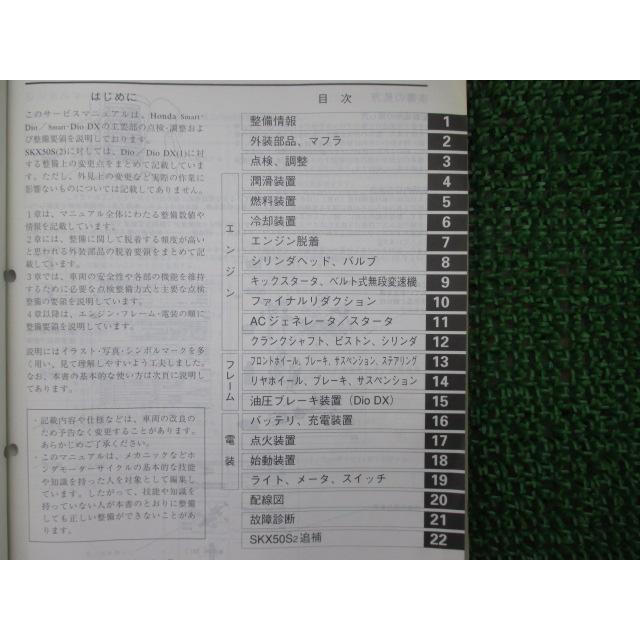 はじめに
このサービスマニュアルは、Honda Smart・
Dio／Smart・Dio DXの主要部の点検・調整およ
び整備要領を説明しております。
SKX50S(2)に対しては、Dio／Dio DX(1)に対
する整備上の変更点をまとめて記載していま
す。ただし、外見上の変更など実際の作業に
影響ないものについては記載してありません。
1章は、マニュアル全体にわたる整備数値や
情報を記載しています。
2章には、整備に関して脱着する頻度が高い
と思われる外装部品の脱着要領をまとめて記
載しています。
3章では、車両の安全性や各部の機能を維持
するために必要な点検整備方式と主要な点検
整備の要領を説明しています。
4章以降は、エンジン・フレーム・電装の順に
整備要領を説明しています。
説明にはイラスト・写真・シンボルマークを多
く用い、見て理解しやすいよう工夫しました。
なお、本書の基本的な使い方は次頁に説明し
てあります。
・記載内容や仕様などは、車両の改良のた
め予告なく変更することがあります。
あらかじめご了承ください。
・このマニュアルは、メカニックなどホ
ンダモーターサイクルの基本的な技能
や知識を持った人を対象として編集し
ています。したがって、技能や知識を
持っていない人が本書のとおりに整備
しても正しい整備ができないことがあ
ります。
目 次
整備情報 1
外装部品、マフラ 2
点検、調整 3
エンジン
潤滑装置 4
燃料装置 5
冷却装置 6
エンジン脱着 7
シリンダヘッド、バルブ 8
キックスタータ、ベルト式無段変速機 9
ファイナルリダクション 10
ACジェネレータ／スタータ 11
クランクシャフト、ピストン、シリンダ 12
フレーム
フロントホイール、ブレーキ、サスペンション、ステアリング 13
リヤホイール、ブレーキ、サスペンション 14
油圧ブレーキ装置（Dio DX） 15
電装
バッテリ、充電装置 16
点火装置 17
始動装置 18
ライト、メータ、スイッチ 19
配線図 20
故障診断 21
SKX50S2追補 22